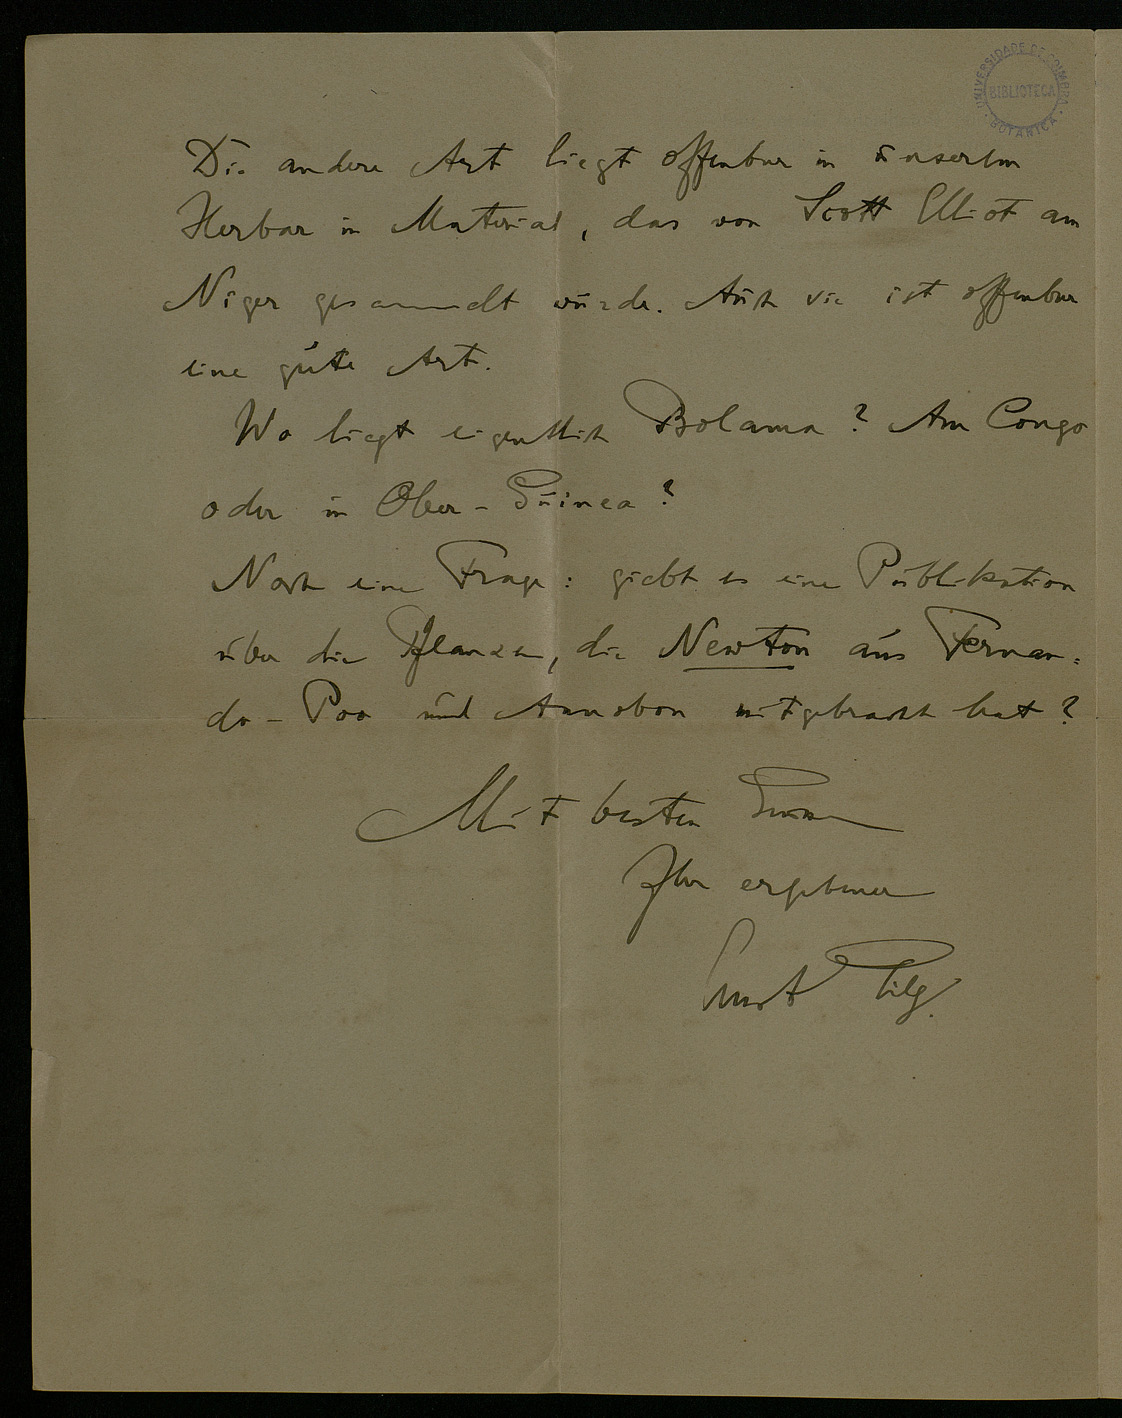 UNIVERSIDADE DE COIMBRA
BIBLIOTECA
BOTANICA
Die andere Art liegt offenbar in unserem
Herbar in Material, das von Scott Elliot am
Niger gesammelt wurde. Auch sie ist offenbar
eine gute Art.
Wo liegt eigentlich Bolama? Am Congo
oder in Ober-Guinea?
Noch eine Frage: giebt es eine Publikation
über die Pflanzen, die Newton aus Fernan-
do-Poo und Annobon mitgebracht hat?
Mit besten
Ihr ergebener
Gilg.